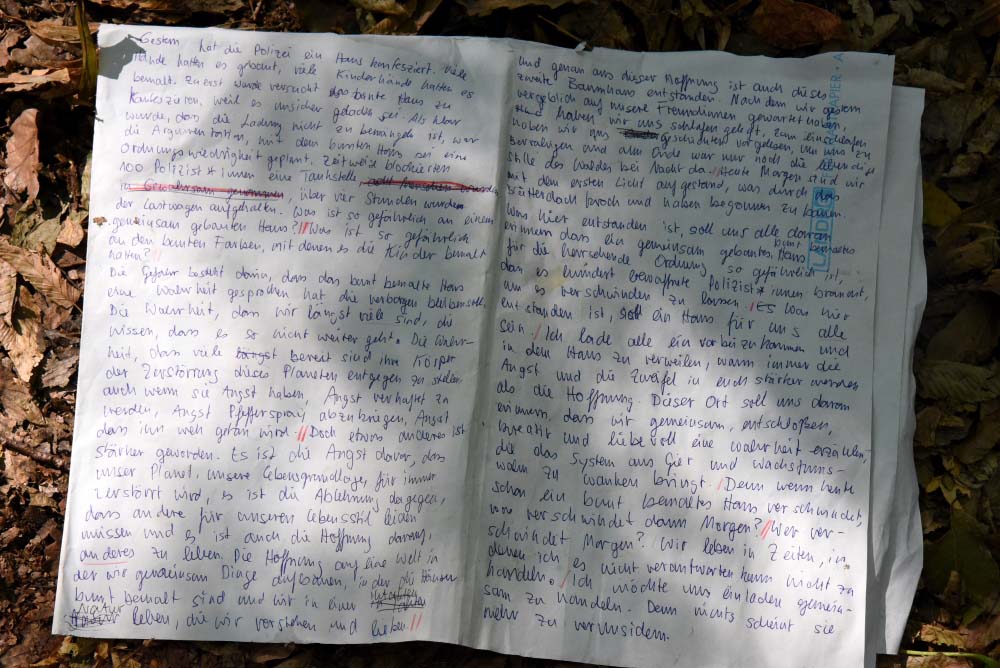 Gestern hat die Polizei ein Haus konfesziert. Viele
Hände hatten es gebaut, viele Kinderhände hatten es
bemalt. Zuerst wurde versucht das bunte Haus zu
konfeszieren, weil es unsicher geladen sei. Als klar
wurde, dass die Ladung nicht zu bemängeln ist, war
die Argumentation, mit dem bunten Haus sei eine
Ordnungswiedrigkeit geplant. Zeitweise blockierten
100 Polizist*innen eine Tankstelle
in Gewahrsam genommen, über vier Stunden wurde
der Lastwagen aufgehalten. Was ist so gefährlich an einem
gemeinsam gebauten Haus? Was ist so gefährlich
an den bunten Farben, mit denen es die Kinder bemalt
hatten?
Die Gefahr besteht darin, dass das bunt bemalte Haus
eine Wahrheit gesprochen hat die verborgen bleiben soll.
Die Wahrheit, dass wir längst viele sind, die
wissen, dass es so nicht weiter geht. Die Wahr-
heit, dass viele längst bereit sind ihre Körper
der Zerstörung dieses Planeten entgegen zu stellen
auch wenn sie Angst haben, Angst verhaftet zu
werden, Angst Pfefferspray abzukriegen, Angst
dass ihn weh getan wird. Doch etwas anderes ist
stärker geworden. Es ist die Angst davor, das
unser Planet, unsere Lebensgrundlage, für immer
zerstört wird, es ist die Ablehnung dagegen,
dass andere für unseren Lebensstil leiden
müssen und es ist auch die Hoffnung darauf,
anderes zu leben. Die Hoffnung auf eine Welt in
der wir gemeinsam Dinge aufbauen, in der die Häuser
bunt bemalt sind und wir in einer
Natur leben, die wir verstehen und lieben
und genau aus dieser Hoffnung ist auch dieses
zweite Baumhaus entstanden. Nachdem wir gestern
vergeblich auf unsere Freundinnen gewartet haben,
haben wir uns schlafen gelegt. Zum einschlafen
haben wir uns Geschichten vorgelesen, um uns zu
beruhigen und am Ende war nur noch die
Stille des Waldes bei Nacht da. Heute Morgen sind wir
mit dem ersten Licht aufgestand, was durch das
Blätterdach broch und haben begonnen zu bauen.
Was hier entstanden ist, soll uns alle daran
erinnern dass ein gemeinsam gebautes, bunt bemaltes Haus
für die herrschende Ordnung so gefährlich ist,
dass es hundert bewaffnete Polizist*innen braucht,
um es verschwinden zu lassen. Es was hier
entstanden ist, soll ein Haus für uns alle
sein. Ich lade alle ein vorbei zu kommen und
in dem Haus zu verweilen, wann immer die
Angst und die Zweifel in euch stärker werden
als die Hoffnung. Dieser Ort soll uns daran
erinnern, dass wir gemeinsam, entschloßen,
kreativ und liebevoll eine Wahrheit erzählen,
die das System aus Gier und Wachstums-
wahn zu wanken bringt. Denn wenn heute
schon ein bunt bemaltes Haus verschwindet,
wo verschwindet dann Morgen? Wer ver-
schwindet Morgen? Wir leben in Zeiten, in
denen ich es nicht verantworten kann nicht zu
handeln. Ich möchte uns einladen gemein-
sam zu handeln. Denn nichts scheint sie
mehr zu verunsidern.